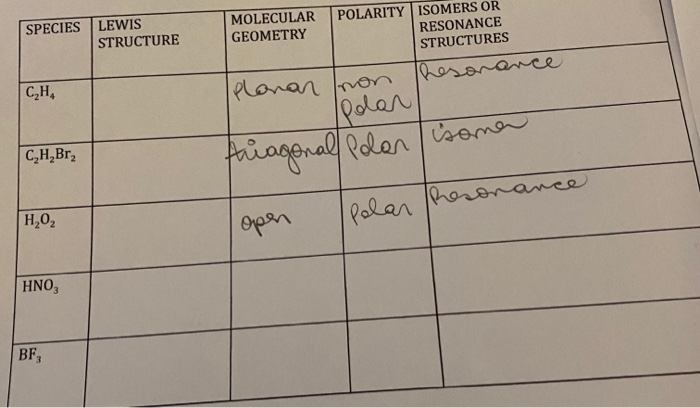 SPECIES LEWIS STRUCTURE MOLECULAR GEOMETRY POLARITY ISOMERS OR RESONANCE STRUCTURES
C₂H₄ planar non polar Resonance
C₂H₂Br₂ triagonal Polar isomer
H₂O₂ open Polar Resonance
HNO₃
BF₃